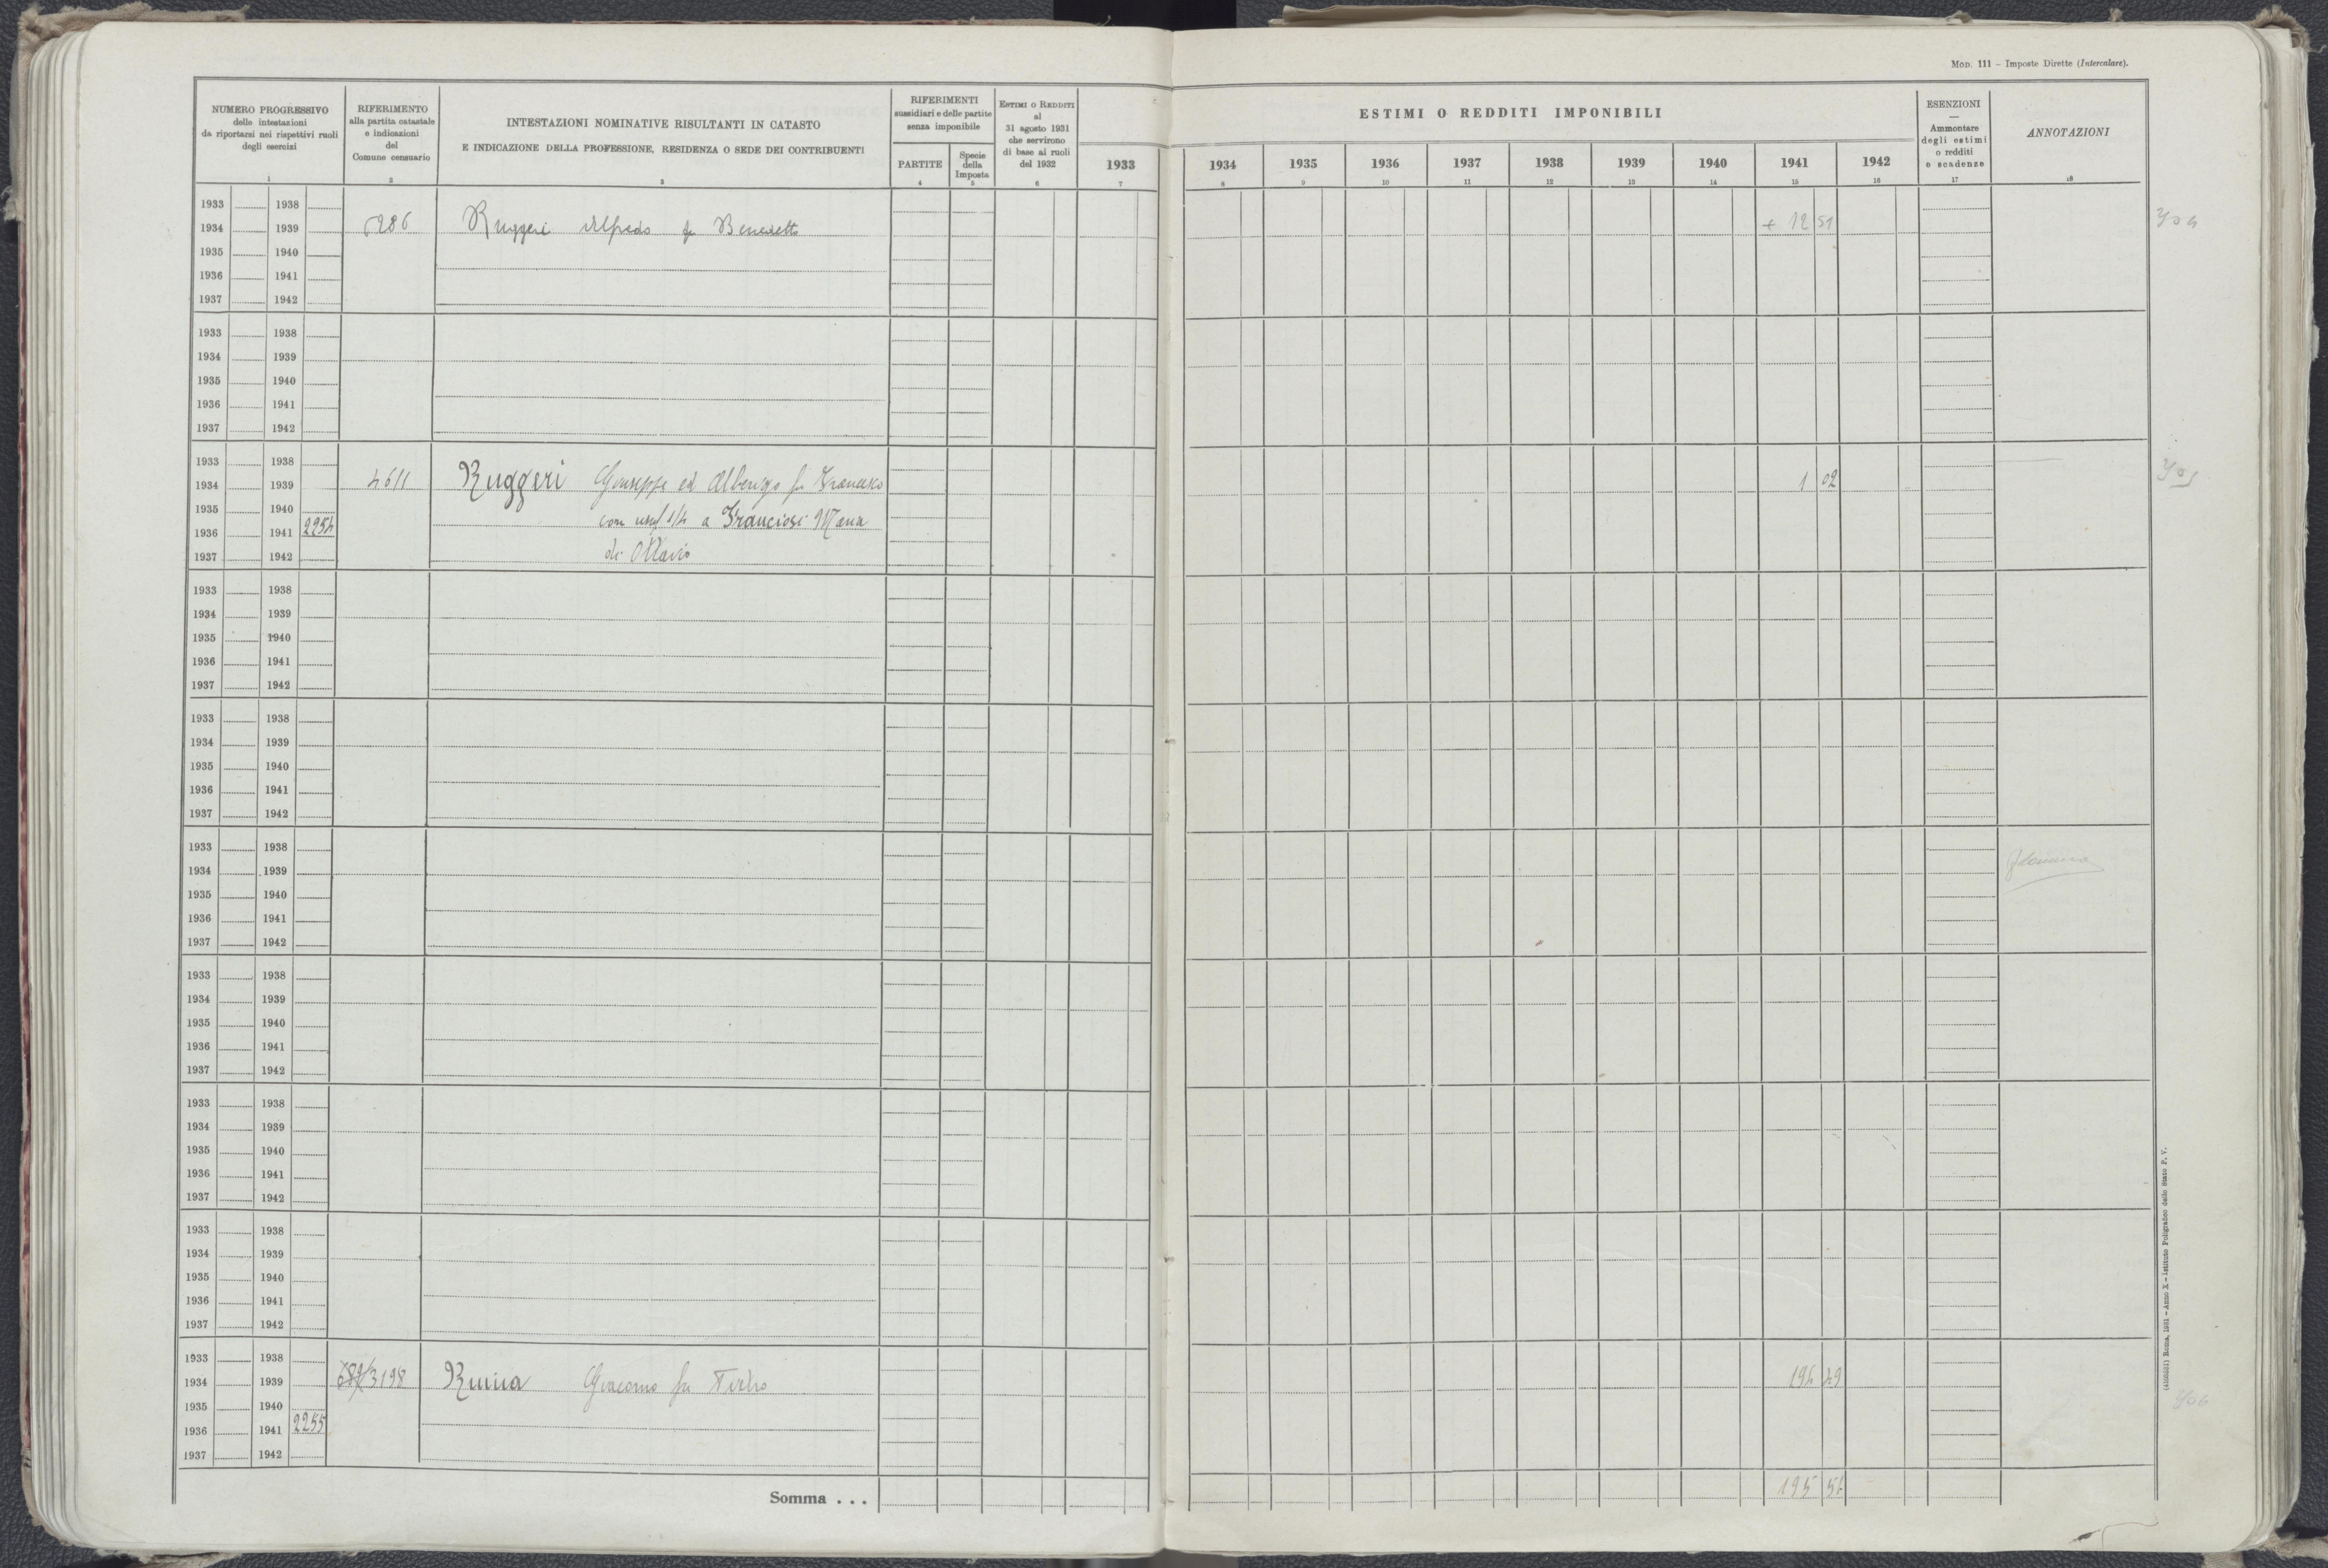 MOD. 111 - Imposte Dirette (Intercalare).
NUMERO PROGRESSIVO
delle intestazioni
da riportarsi nei rispettivi ruoli
degli esercizi
1
RIFERIMENTO
alla partita catastale
e indicazioni
del
Comune censuario
2
INTESTAZIONI NOMINATIVE RISULTANTI IN CATASTO
E INDICAZIONE DELLA PROFESSIONE, RESIDENZA O SEDE DEI CONTRIBUENTI
3
RIFERIMENTI
sussidiari e delle partite
senza imponibile
PARTITE
4
Specie
della
Imposta
5
ESTIMI O REDDITI
al
31 agosto 1931
che servirono
di base ai ruoli
del 1932
6
ESTIMI O REDDITI IMPONIBILI
1933 1934 1935 1936 1937 1938 1939 1940 1941 1942
7 8 9 10 11 12 13 14 15 16
ESENZIONI
—
Ammontare
degli estimi
o redditi
e scadenze
17
ANNOTAZIONI
18
1933 1938
1934 1939 Ruggeri Alfredo fu Benedetto + 12 51
1935 1940
1936 1941
1937 1942
1933 1938
1934 1939
1935 1940
1936 1941
1937 1942
1933 1938
1934 1939 4611 Ruggeri Giuseppe ed Alberigo fu Francesco 1 02
1935 1940 con usuf 1/4 a Franciosi Maria
1936 1941 2254
1937 1942 di Ottavio
1933 1938
1934 1939
1935 1940
1936 1941
1937 1942
1933 1938
1934 1939
1935 1940
1936 1941
1937 1942
1933 1938
1934 1939
1935 1940
1936 1941
1937 1942
1933 1938
1934 1939
1935 1940
1936 1941
1937 1942
1933 1938
1934 1939
1935 1940
1936 1941
1937 1942
1933 1938
1934 1939
1935 1940
1936 1941
1937 1942
1933 1938
1934 1939 3198 Giacomo fu 194 49
1935 1940
1936 1941 2255
1937 1942
Somma . . . 195 51
Roma, 1931 - Anno X - Istituto Poligrafico dello Stato P. V.